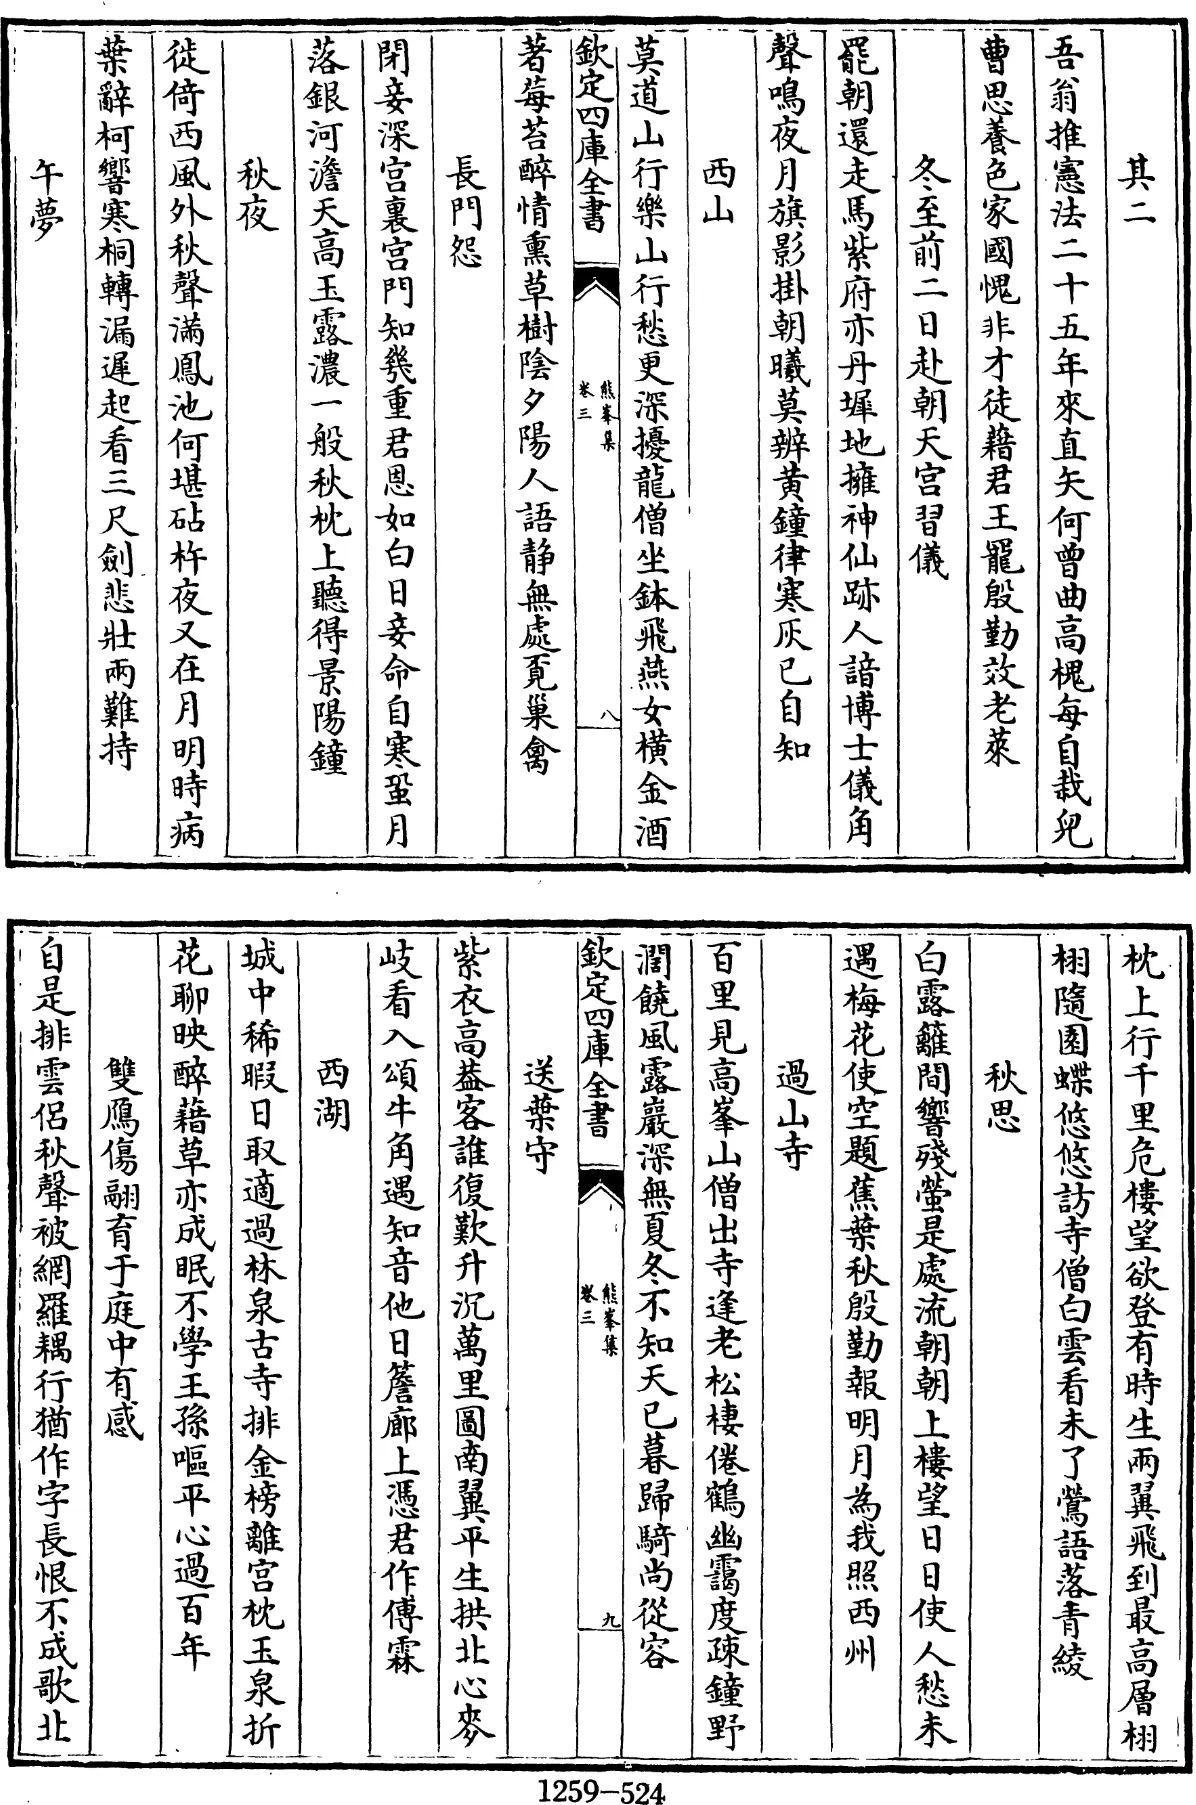 其二
吾翁推憲法二十五年來直矢何曾曲高槐每自栽兒
曹思養色家國愧非才徒藉君王寵殷勤效老萊
冬至前二日赴朝天宫習儀
罷朝還走馬紫府亦丹墀地擁神仙跡人諳博士儀角
聲鳴夜月旗影掛朝曦莫辨黄鐘律寒灰已自知
西山
莫道山行樂山行愁更深擾龍僧坐鉢飛燕女横金酒
欽定四庫全書
熊峯集
卷三
八
著莓苔醉情熏草樹陰夕陽人語静無處覓巢禽
長門怨
閉妾深宫裏宫門知幾重君恩如白日妾命自寒蛩月
落銀河澹天高玉露濃一般秋枕上聽得景陽鐘
秋夜
徙倚西風外秋聲滿鳳池何堪砧杵夜又在月明時病
葉辭柯響寒桐轉漏遲起看三尺劍悲壯兩難持
午夢
枕上行千里危樓望欲登有時生兩翼飛到最高層栩
栩隨園蝶悠悠訪寺僧白雲看未了鶯語落青綾
秋思
白露籬間響殘螢是處流朝朝上樓望日日使人愁未
遇梅花使空題蕉葉秋殷勤報明月為我照西州
過山寺
百里見高峯山僧出寺逢老松棲倦鶴幽靄度疎鐘野
濶饒風露巖深無夏冬不知天已暮歸騎尚從容
欽定四庫全書
熊峯集
卷三
九
送葉守
紫衣高葢客誰復歎升沉萬里圖南翼平生拱北心麥
岐看入頌牛角遇知音他日簷廊上憑君作傅霖
西湖
城中稀暇日取適過林泉古寺排金榜離宫枕玉泉折
花聊映醉藉草亦成眠不學王孫嘔平心過百年
雙鴈傷翮育于庭中有感
自是排雲侣秋聲被網羅耦行猶作字長恨不成歌北
1259-524